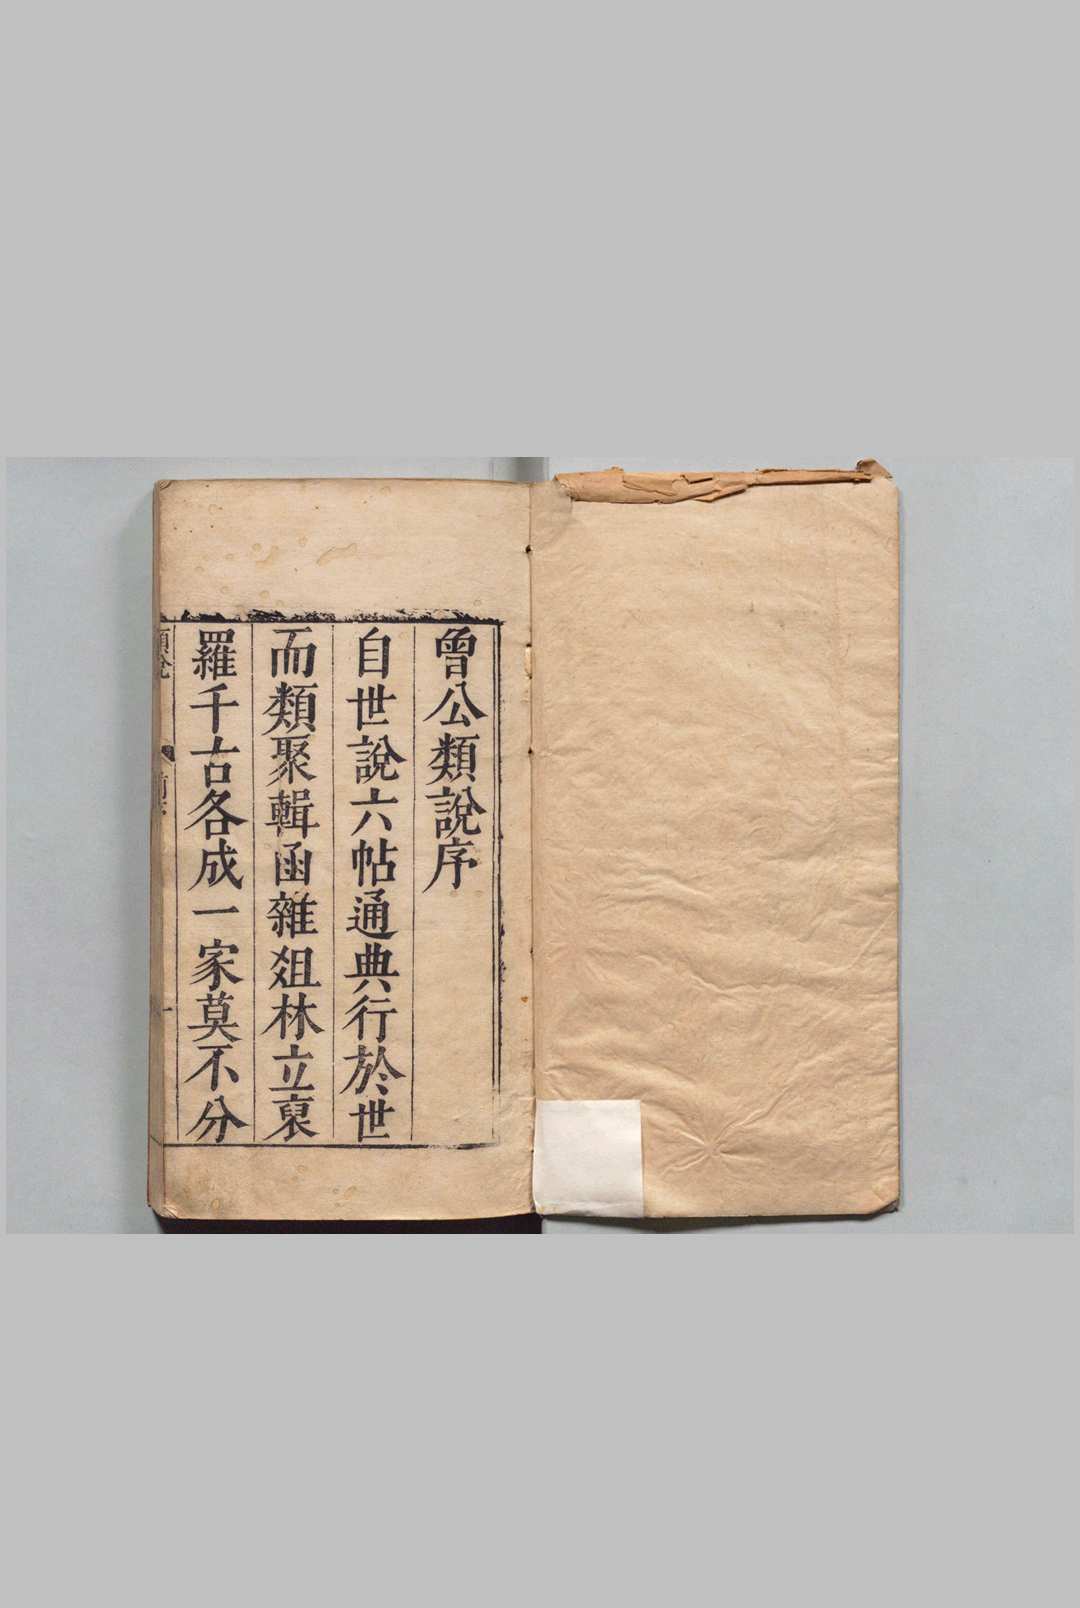 曾公類說序
自世說六帖通典行於世
而類聚輯函雜俎林立裒
羅千古各成一家莫不分